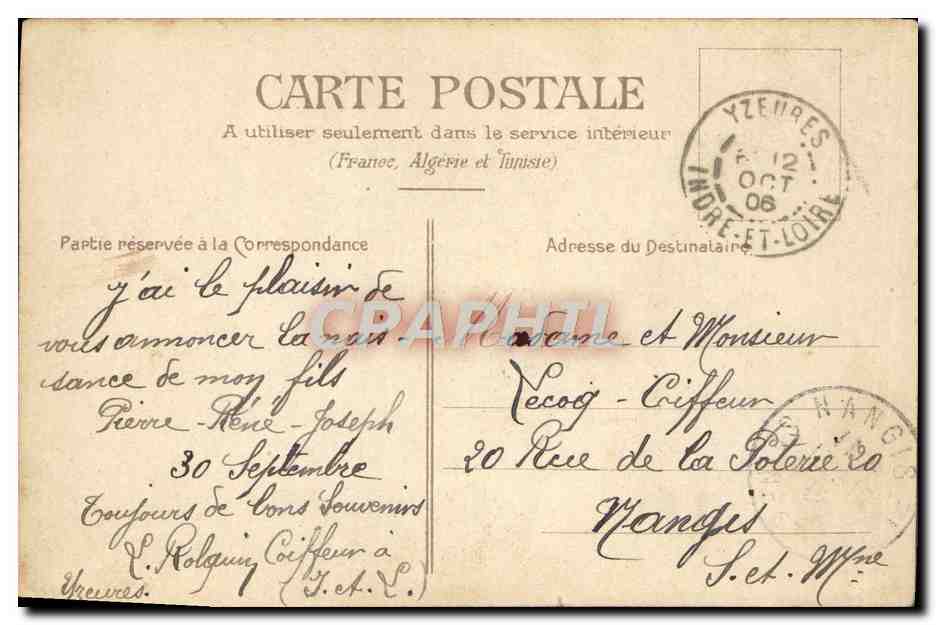 CARTE POSTALE
A utiliser seulement dans le service intérieur
(France, Algérie et Tunisie)
YZEURES
12
OCT
06
INDRE-ET-LOIRE
Partie réservée à la Correspondance
J'ai le plaisir de
vous annoncer la nais-
sance de mon fils
Pierre-Réné-Joseph
30 Septembre
Toujours de bons Souvenirs
Coiffeur à
Yzeures. (I. et L.)
Adresse du Destinataire
Madame et Monsieur
Lecoq - Coiffeur
20 Rue de la Poterie 20
Nangis
S. et Mne
NANGIS
CPAPHIL